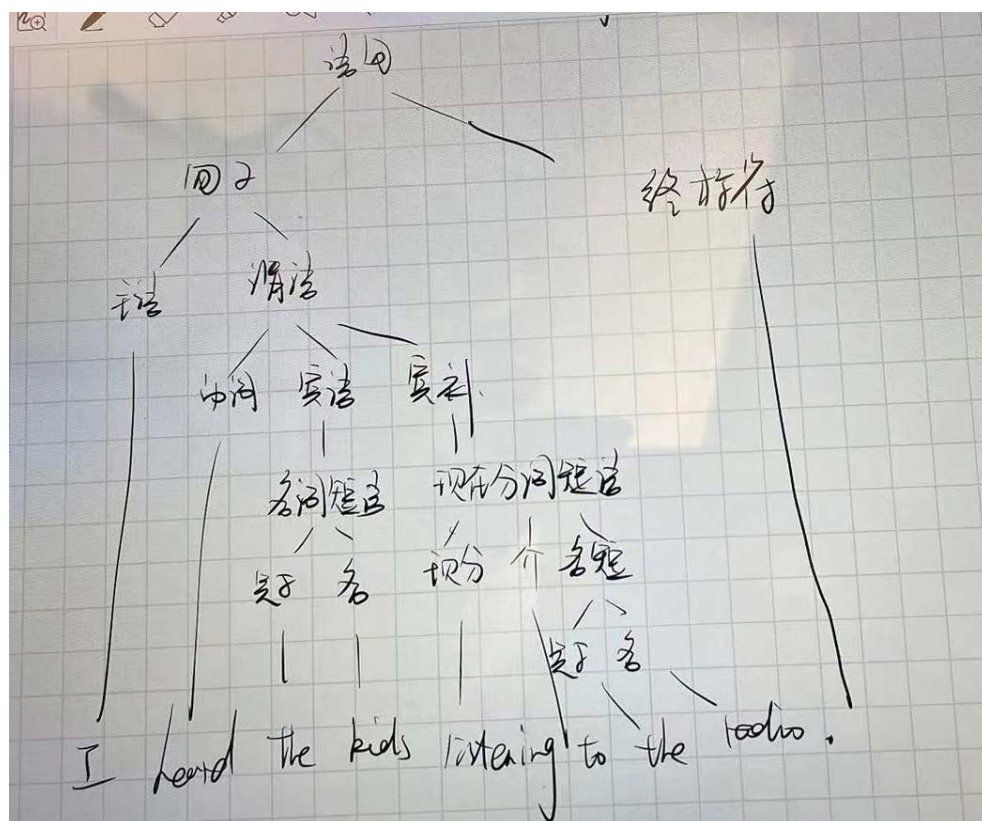 语句
句子 终标符
主语 谓语
动词 宾语 宾补
名词短语 现在分词短语
定于 名 现分 介 名短
定于 名
I heard the kids listening to the radio.